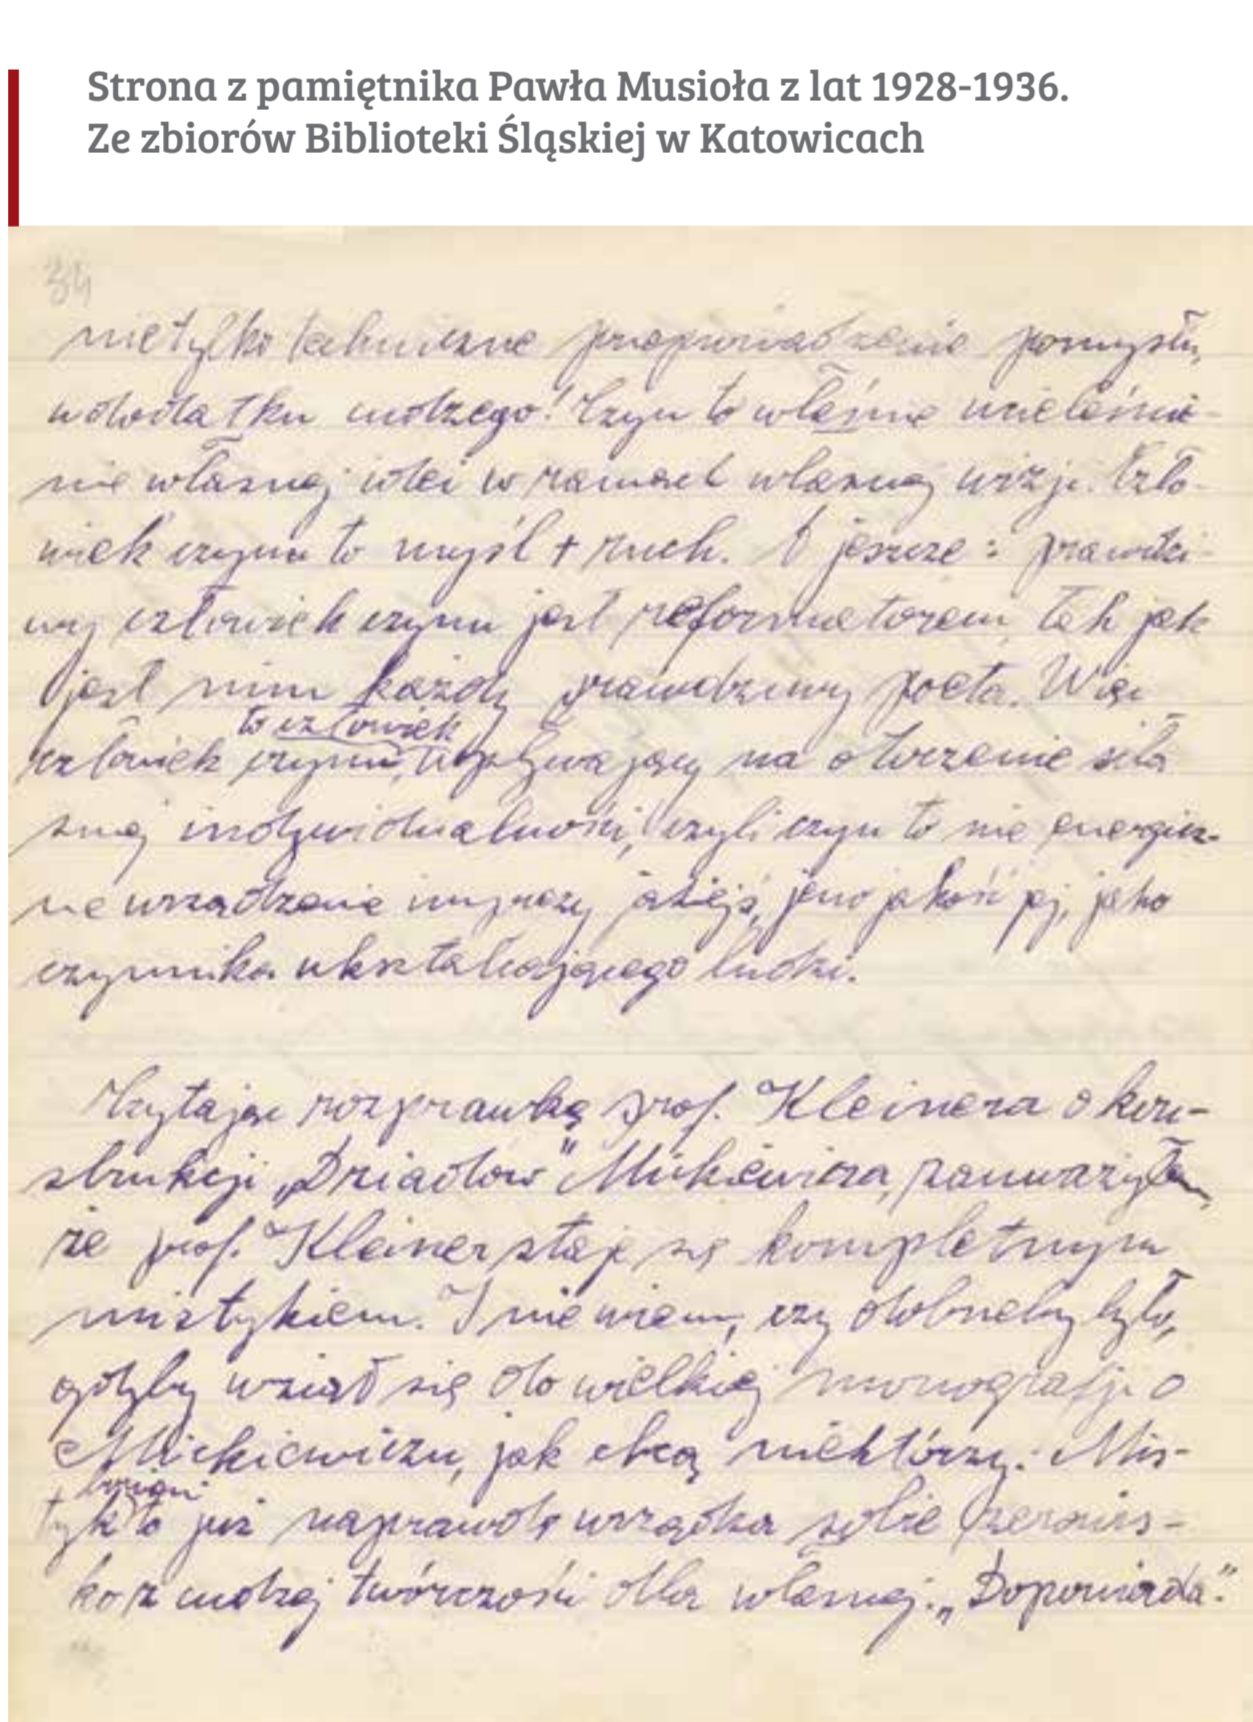 Strona z pamiętnika Pawła Musioła z lat 1928-1936.
Ze zbiorów Biblioteki Śląskiej w Katowicach
34
nietylko techniczne przeprowadzenie pomysłu,
w dodatku cudzego! Czyn to właśnie wcieleśnie-
nie własnej idei w ramach własnej wizji. Czło-
wiek czynu to myśl + ruch. I jeszcze: prawdzi-
wy człowiek czynu jest reformatorem, tak jak
jest nim każdy prawdziwy poeta. Więc
to człowiek
człowiek czynu, wpływający na otoczenie siłą
swej indywidualności, czyli czyn to nie energicz-
ne urządzenie imprezy jakiejś, jeno jakość jej, jako
czynnika ukształcającego ludzi.
Czytając rozprawkę prof. Kleinera o kon-
strukcji „Dziadów" Mickiewicza, zauważyłem,
że prof. Kleiner staje się kompletnym
mistykiem. I nie wiem, czy dobrzeby było,
gdyby wziął się do wielkiej monografji o
Mickiewiczu, jak chcą niektórzy. Mis-
tyk to już naprawdę urządza sobie żerowis-
ko z cudzej twórczości dla własnej. „Dopowiada".